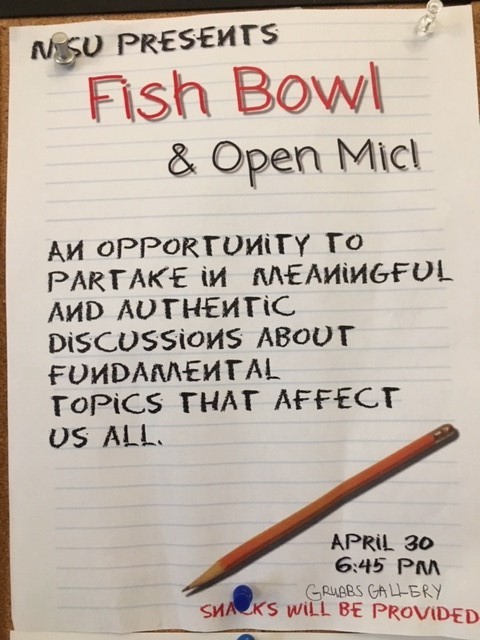 PRESENTS
Fish Bowl
& Open Mic!
AN OPPORTUNITY TO
PARTAKE IN MEANINGFUL
AND AUTHENTIC
DISCUSSIONS ABOUT
FUNDAMENTAL
TOPICS THAT AFFECT
US ALL.
APRIL 30
6:45 PM
GRUBBS GALLERY
SNACKS WILL BE PROVIDED